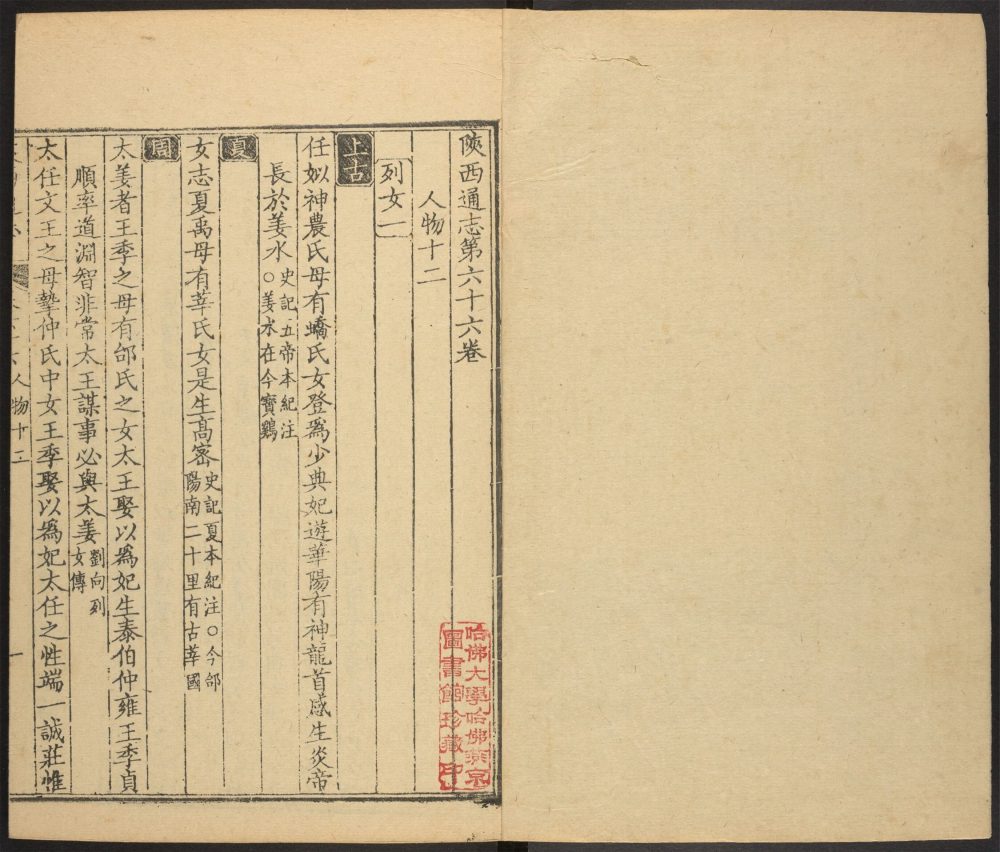 陝西通志第六十六卷
人物十二
列女一
上古
任姒神農氏母有蟜氏女登為少典妃遊華陽有神龍首感生炎帝
長於姜水史記五帝本紀注○姜水在今寶鷄
夏
女志夏禹母有莘氏女是生髙密史記夏本紀注○今郃陽南二十里有古莘國
周
太姜者王季之母有邰氏之女太王娶以爲妃生泰伯仲雍王季貞
順率道淵智非常太王謀事必與太姜劉向列女傳
太任文王之母摯仲氏中女王季娶以爲妃太任之性端一誠莊惟
人物十二
一
哈佛大學哈佛燕京
圖書館珍藏印